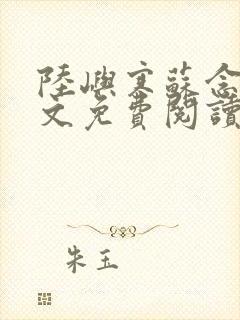 陸嶼寒蘇念
文免費閱讀
朱玉